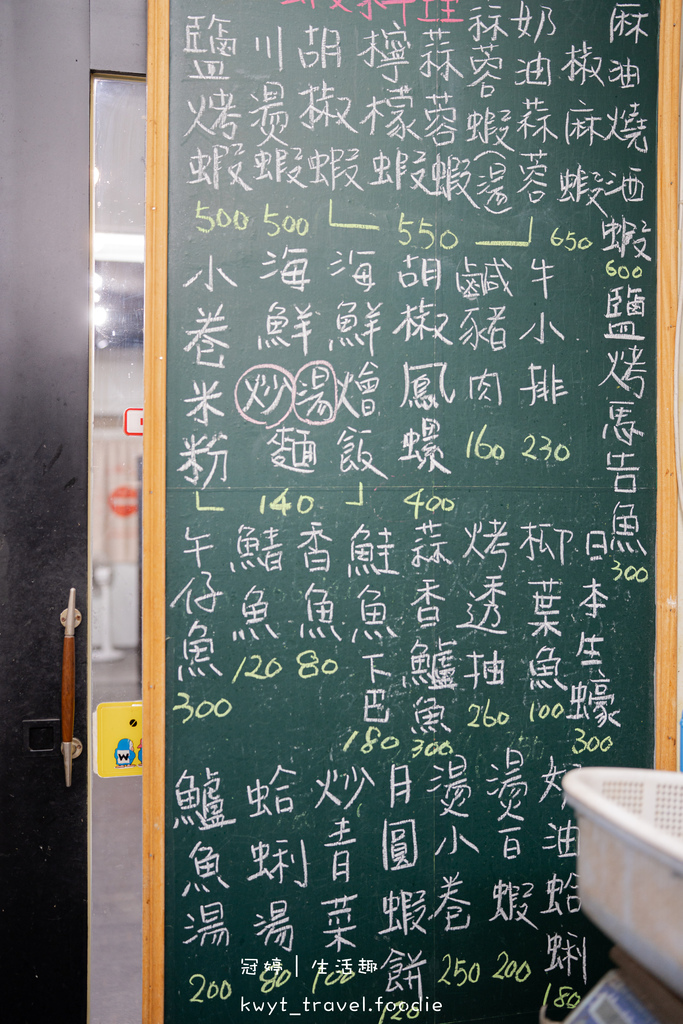 蝦料理
鹽烤蝦 500
川燙蝦 500
胡椒蝦
檸檬蝦
蒜蓉蝦
蒜蓉蝦(燙)
奶油蒜蓉
550
椒麻蝦 650
麻油燒酒蝦 600
小卷米粉
海鮮炒湯麵
海鮮燴飯
140
胡椒鳳螺 400
鹹豬肉 160
牛小排 230
鹽烤馬告魚 300
午仔魚 300
鯖魚 120
香魚 80
鮭魚下巴 180
蒜香鱸魚 300
烤透抽 260
柳葉魚 100
日本生蠔 300
鱸魚湯 200
蛤蜊湯 80
炒青菜 100
月圓蝦餅 120
燙小卷 250
燙白蝦 200
奶油蛤蜊 180
冠婷｜生活趣
kwyt_travel.foodie